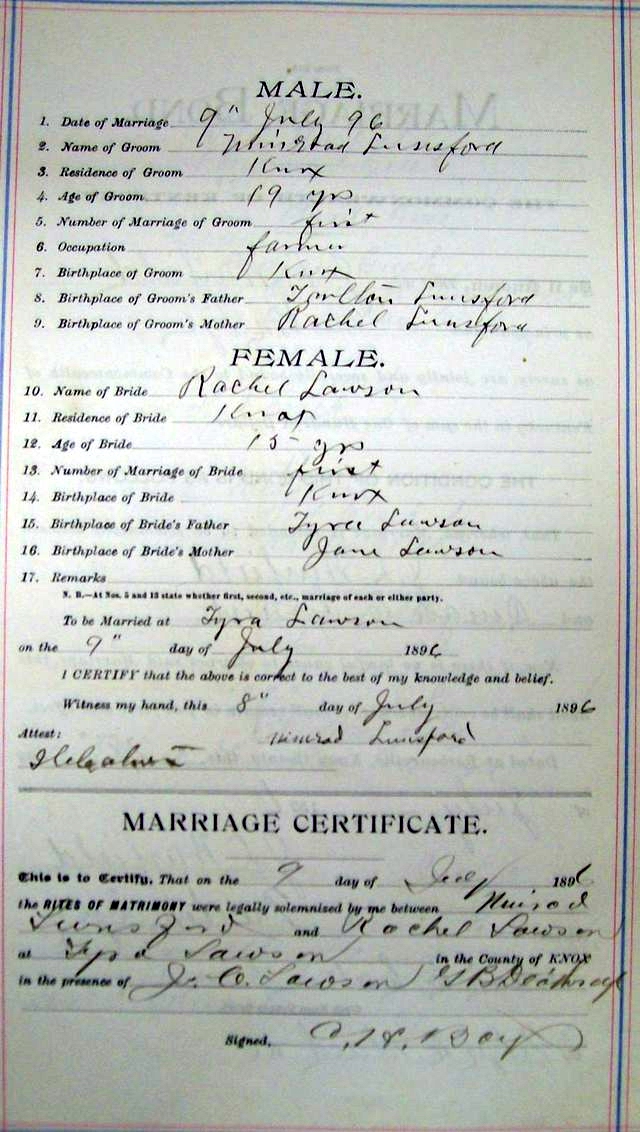 MALE.
1. Date of Marriage 9" July 96
2. Name of Groom Nimrod Lunsford
3. Residence of Groom Knox
4. Age of Groom 19 yrs
5. Number of Marriage of Groom first
6. Occupation farmer
7. Birthplace of Groom Knox
8. Birthplace of Groom's Father Lunsford
9. Birthplace of Groom's Mother Rachel Lunsford
FEMALE.
10. Name of Bride Rachel Lawson
11. Residence of Bride Knox
12. Age of Bride 15 yrs
13. Number of Marriage of Bride first
14. Birthplace of Bride Knox
15. Birthplace of Bride's Father Tyra Lawson
16. Birthplace of Bride's Mother Jane Lawson
17. Remarks
N. B.—At Nos. 5 and 13 state whether first, second, etc., marriage of each or either party.
To be Married at Tyra Lawson
on the 9" day of July 1896
I CERTIFY that the above is correct to the best of my knowledge and belief.
Witness my hand, this 8" day of July 1896
Attest: Nimrod Lunsford
MARRIAGE CERTIFICATE.
This is to Certify, That on the 9 day of July 1896
the RITES OF MATRIMONY were legally solemnized by me between Nimrod
Lunsford and Rachel Lawson
at Tyra Lawson in the County of KNOX
in the presence of J. C. Lawson G B
Signed,